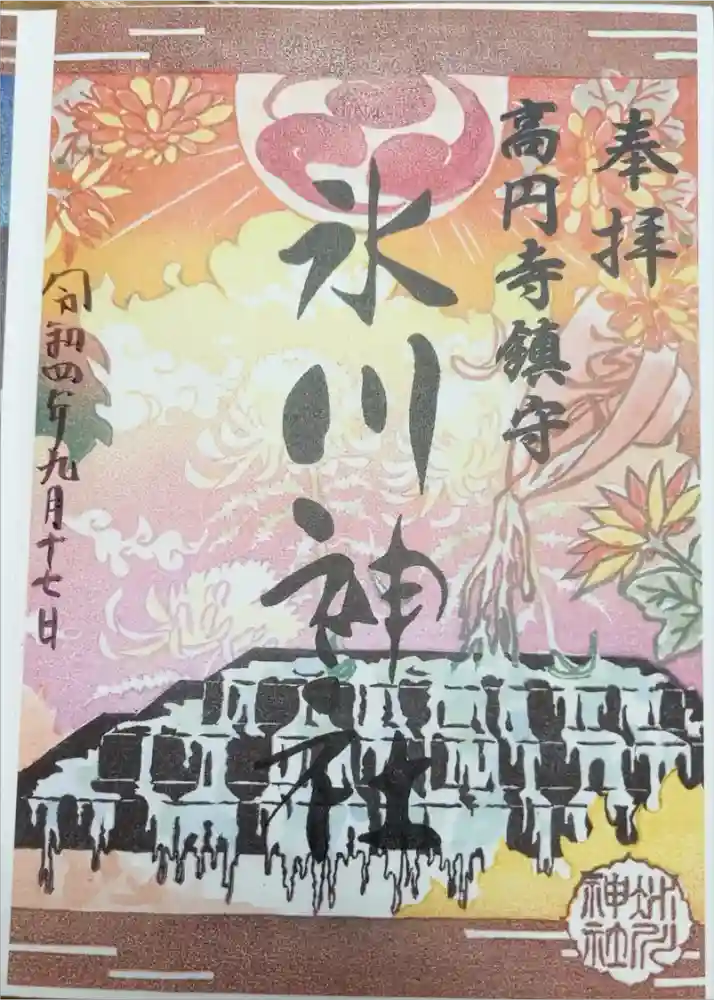 奉拝
高円寺鎮守
氷川神社
令和四年九月十七日
氷川神社